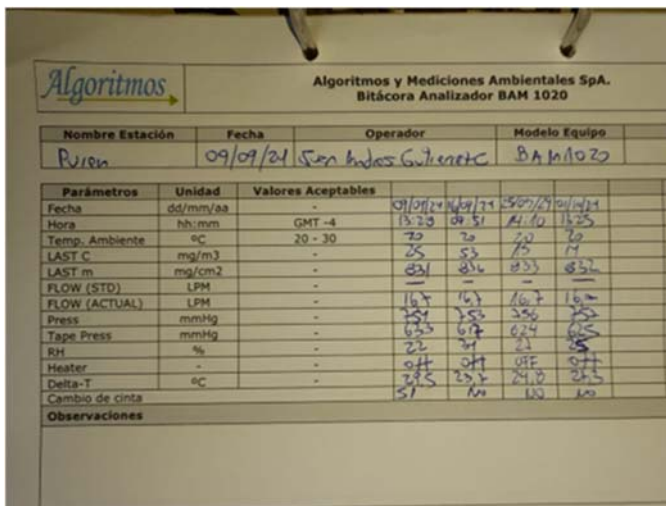 Algoritmos
Algoritmos y Mediciones Ambientales SpA.
Bitácora Analizador BAM 1020
Nombre Estación Fecha Operador Modelo Equipo
Puren 09/09/21 Juan Andres Gutierrez C BAM1020
Parámetros Unidad Valores Aceptables
Fecha dd/mm/aa - 09/09/21 16/09/21
Hora hh:mm GMT -4 13:20 09:51 14:10 13:25
Temp. Ambiente ºC 20 - 30 20 20 20 20
LAST C mg/m3 - 25 53 15 19
LAST m mg/cm2 - 831 836 833 832
FLOW (STD) LPM - — — — —
FLOW (ACTUAL) LPM - 16,7 16,7 16,7
Press mmHg - 753 756
Tape Press mmHg - 633 617 624 625
RH % - 22 25
Heater - - off off OFF off
Delta-T ºC - 29,5 23,7 24,8
Cambio de cinta SI NO NO NO
Observaciones